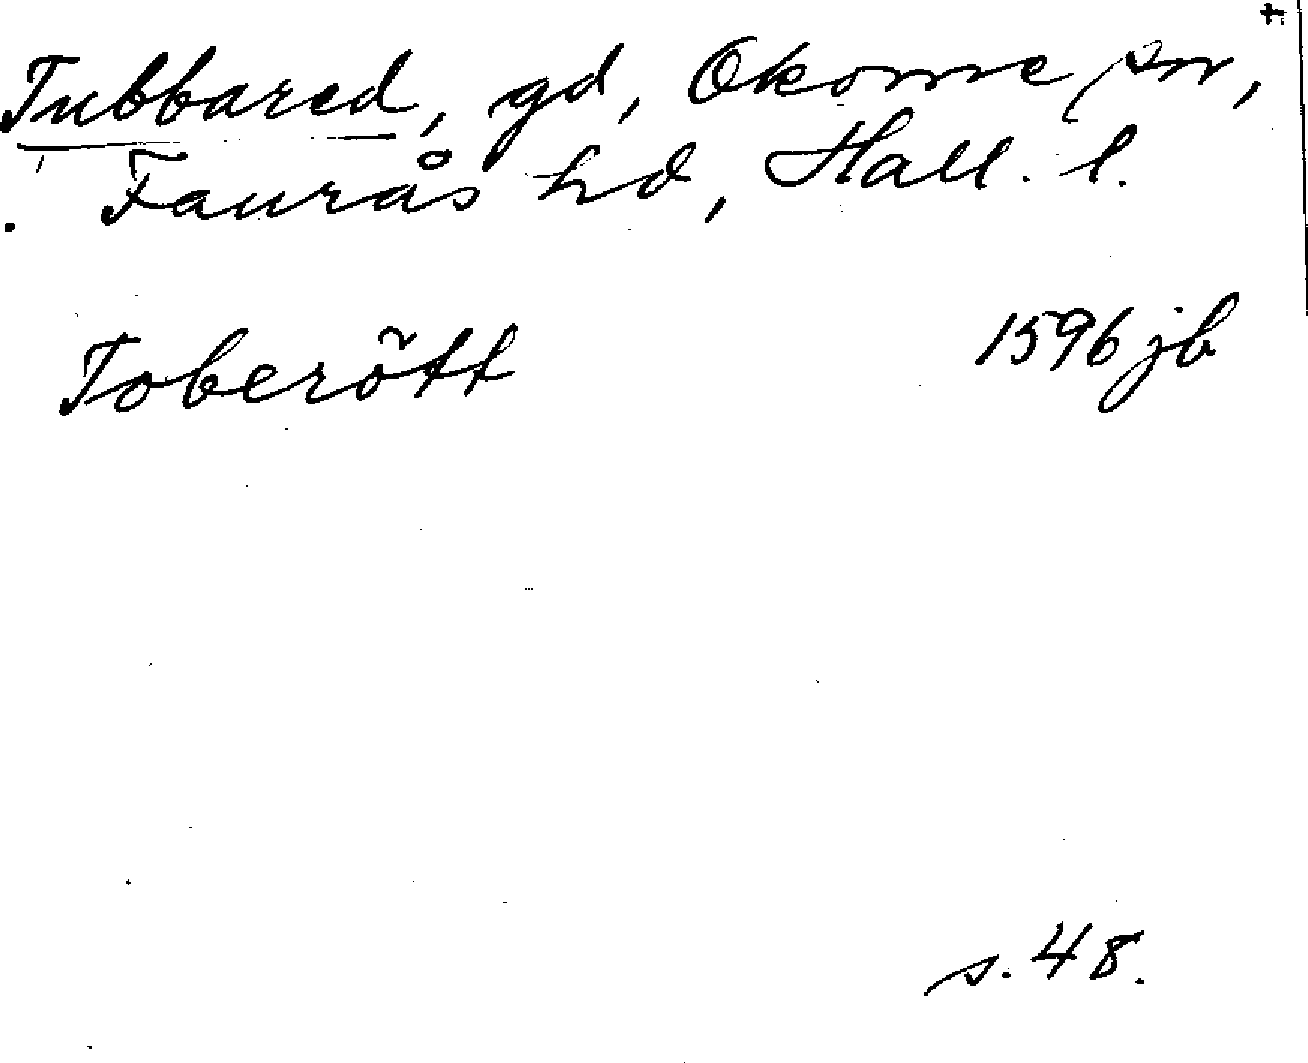 Tubbared, gd, Okome sn,
Faurås hd, Hall. l.
Toberött 1596 jb
s. 48.